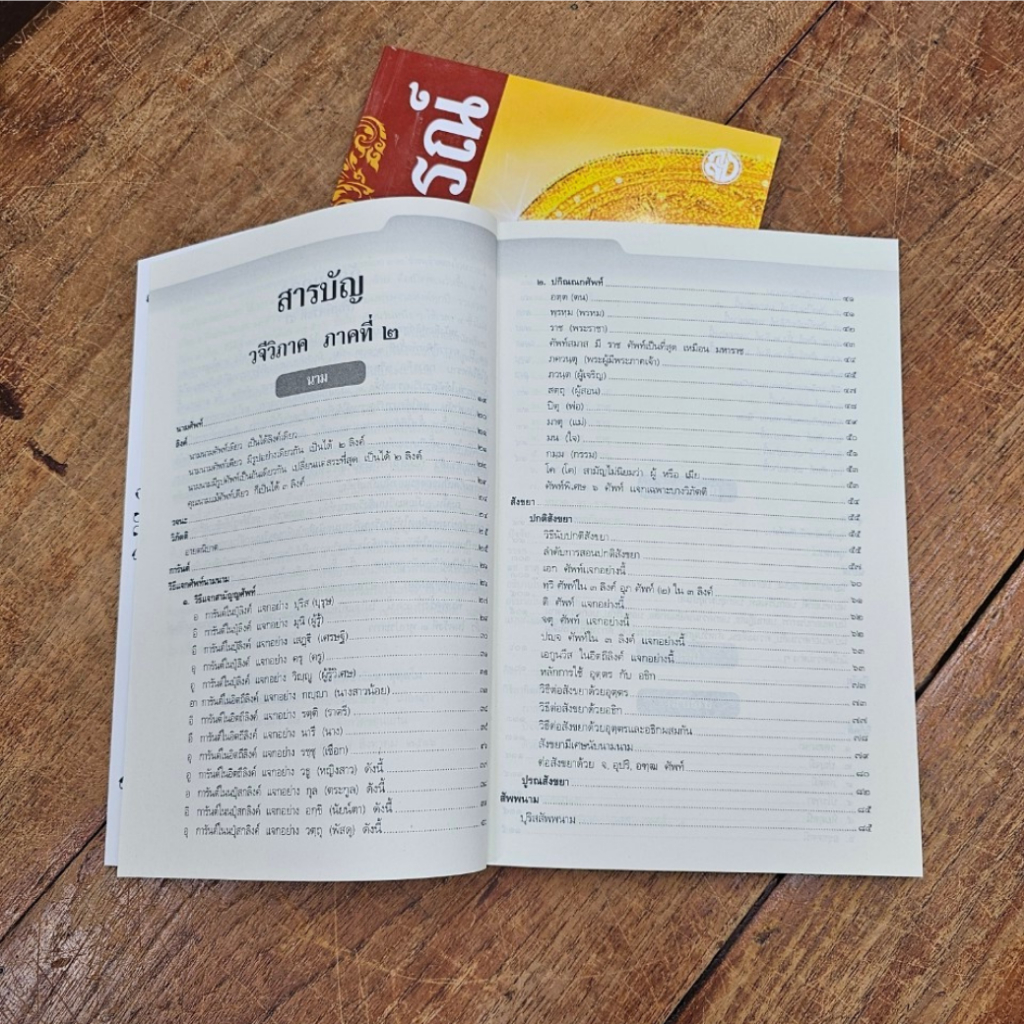 รณ์
สารบัญ
วจีวิภาค ภาคที่ ๒
นาม
นามศัพท์
ลิงค์
นามนามศัพท์เดียว เป็นได้ลิงค์เดียว
นามนามศัพท์เดียว มีรูปอย่างเดียวกัน เป็นได้ ๒ ลิงค์
นามนามมีรูปศัพท์เป็นอันเดียวกัน เปลี่ยนแต่สระที่สุด เป็นได้ ๒ ลิงค์
คุณนามแม้ศัพท์เดียว ก็เป็นได้ ๓ ลิงค์
วจนะ
วิภัตติ
อายตนิบาต
การันต์
วิธีแจกศัพท์นามนาม
๑. วิธีแจกสามัญญศัพท์
อ การันต์ในปุํลิงค์ แจกอย่าง ปุริส (บุรุษ)
อิ การันต์ในปุํลิงค์ แจกอย่าง มุนิ (ผู้รู้)
อี การันต์ในปุํลิงค์ แจกอย่าง เสฏฺฐี (เศรษฐี)
อุ การันต์ในปุํลิงค์ แจกอย่าง ครุ (ครู)
อู การันต์ในปุํลิงค์ แจกอย่าง วิญฺญู (ผู้รู้วิเศษ)
อา การันต์ในอิตถีลิงค์ แจกอย่าง กญฺญา (นางสาวน้อย)
อิ การันต์ในอิตถีลิงค์ แจกอย่าง รตฺติ (ราตรี)
อี การันต์ในอิตถีลิงค์ แจกอย่าง นารี (นาง)
อุ การันต์ในอิตถีลิงค์ แจกอย่าง รชฺชุ (เชือก)
อู การันต์ในอิตถีลิงค์ แจกอย่าง วธู (หญิงสาว) ดังนี้
อ การันต์ในนปุํสกลิงค์ แจกอย่าง กุล (ตระกูล) ดังนี้
อิ การันต์ในนปุํสกลิงค์ แจกอย่าง อกฺขิ (นัยน์ตา) ดังนี้
อุ การันต์ในนปุํสกลิงค์ แจกอย่าง วตฺถุ (พัสดุ) ดังนี้
๒. ปกิณณกศัพท์
อตฺต (ตน) ๔๑
พฺรหฺม (พรหม) ๔๑
ราช (พระราชา) ๔๒
ศัพท์สมาส มี ราช ศัพท์เป็นที่สุด เหมือน มหาราช ๔๓
ภควนฺตุ (พระผู้มีพระภาคเจ้า) ๔๔
ภวนฺต (ผู้เจริญ) ๔๕
สตฺถุ (ผู้สอน) ๔๗
ปิตุ (พ่อ) ๔๘
มาตุ (แม่) ๔๙
มน (ใจ) ๕๐
กมฺม (กรรม) ๕๑
โค (โค) สามัญไม่นิยมว่า ผู้ หรือ เมีย ๕๓
ศัพท์พิเศษ ๖ ศัพท์ แจกเฉพาะบางวิภัตติ ๕๓
สังขยา ๕๔
ปกติสังขยา ๕๕
วิธีนับปกติสังขยา ๕๕
ลำดับการสอนปกติสังขยา ๕๕
เอก ศัพท์แจกอย่างนี้ ๕๗
ทฺวิ ศัพท์ใน ๓ ลิงค์ อุภ ศัพท์ (๒) ใน ๓ ลิงค์ ๖๐
ติ ศัพท์ แจกอย่างนี้ ๖๑
จตุ ศัพท์ แจกอย่างนี้ ๖๒
ปญฺจ ศัพท์ใน ๓ ลิงค์ แจกอย่างนี้ ๖๒
เอกูนวีส ในอิตถีลิงค์ แจกอย่างนี้ ๖๓
หลักการใช้ อุตฺตร กับ อธิก ๖๓
วิธีต่อสังขยาด้วยอุตฺตร ๗๓
วิธีต่อสังขยาด้วยอธิก ๗๓
วิธีต่อสังขยาด้วยอุตฺตรและอธิกผสมกัน ๗๗
สังขยามีเศษนับนามนาม ๗๘
ต่อสังขยาด้วย จ, อุปริ, อฑฺฒ ศัพท์ ๘๐
ปูรณสังขยา ๘๒
สัพพนาม ๘๕
ปุริสสัพพนาม ๘๕